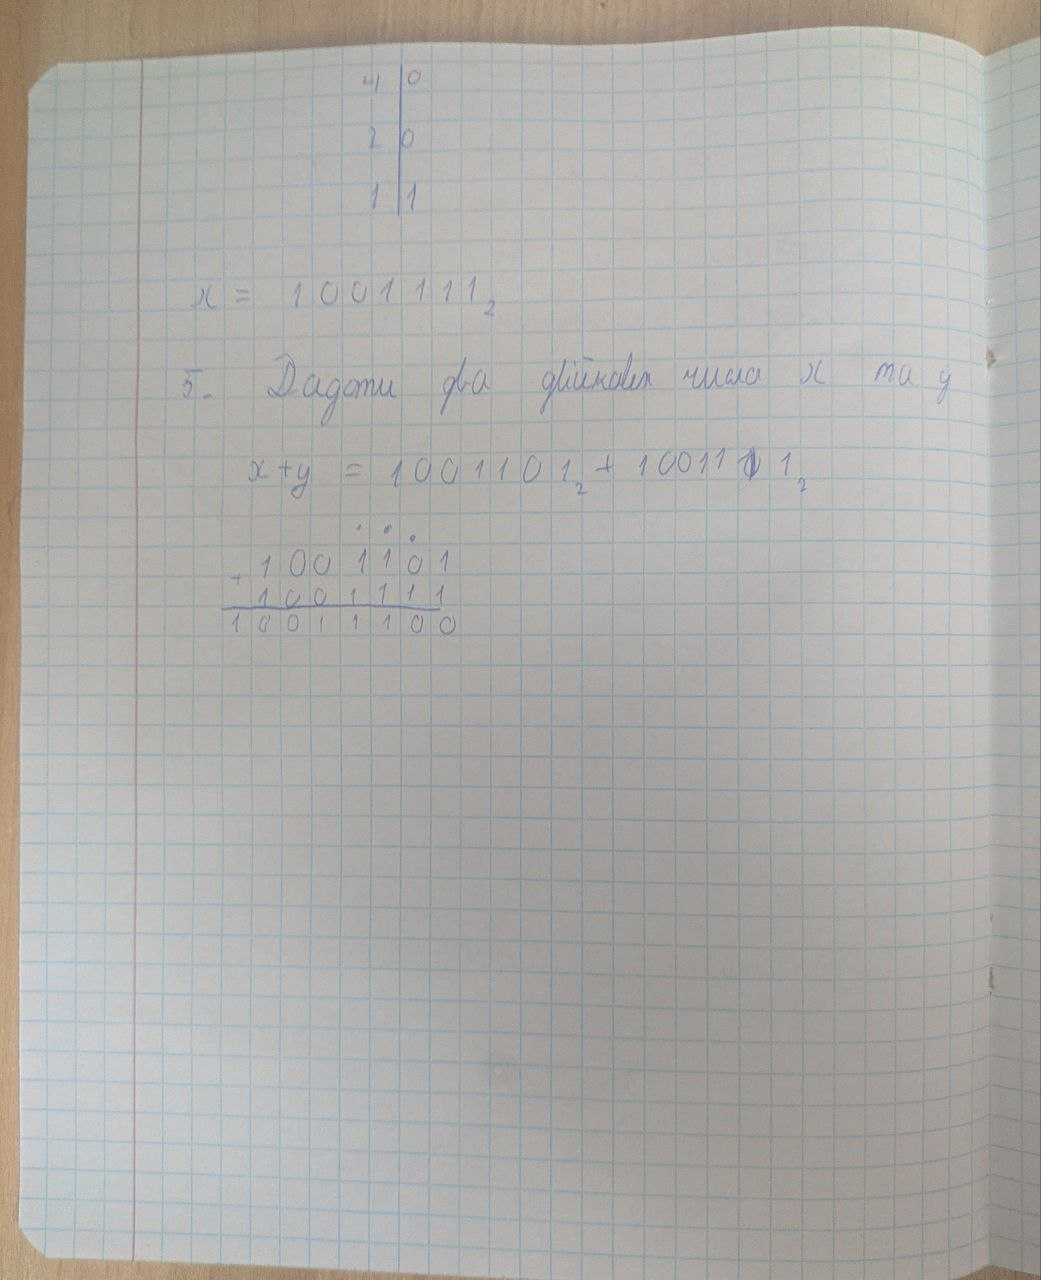 4 | 0
2 | 0
1 | 1
x = 1001111₂
5. Дадоти два двійкових числа x та y
x+y = 1001101₂ + 1001111₂
1001101
+ 1001111
10011100